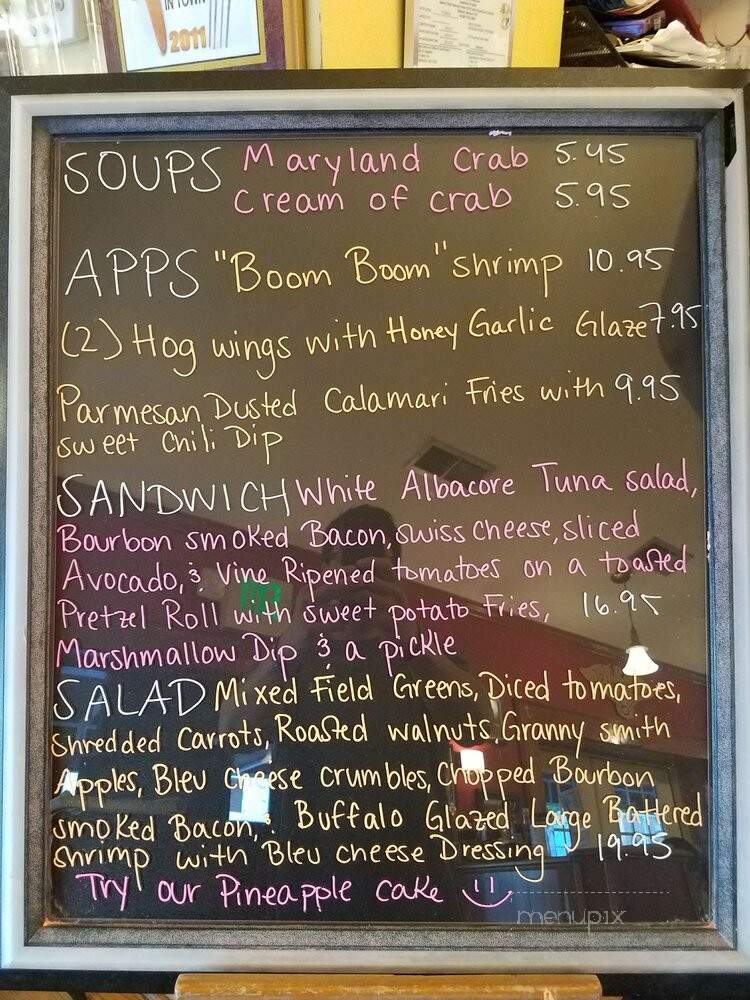 IN TOWN
2011
SOUPS Maryland Crab 5.45
Cream of crab 5.95
APPS "Boom Boom" shrimp 10.95
(2) Hog wings with Honey Garlic Glaze 7.95
Parmesan Dusted Calamari Fries with 9.95
sweet Chili Dip
SANDWICH White Albacore Tuna salad,
Bourbon smoked Bacon, swiss cheese, sliced
Avocado, & Vine Ripened tomatoes on a toasted
Pretzel Roll with sweet potato Fries, 16.95
Marshmallow Dip & a pickle
SALAD Mixed Field Greens, Diced tomatoes,
shredded Carrots, Roasted walnuts, Granny smith
Apples, Bleu cheese crumbles, Chopped Bourbon
smoked Bacon, & Buffalo Glazed Large Battered
shrimp with Bleu cheese Dressing 19.95
Try our Pineapple cake
menupix